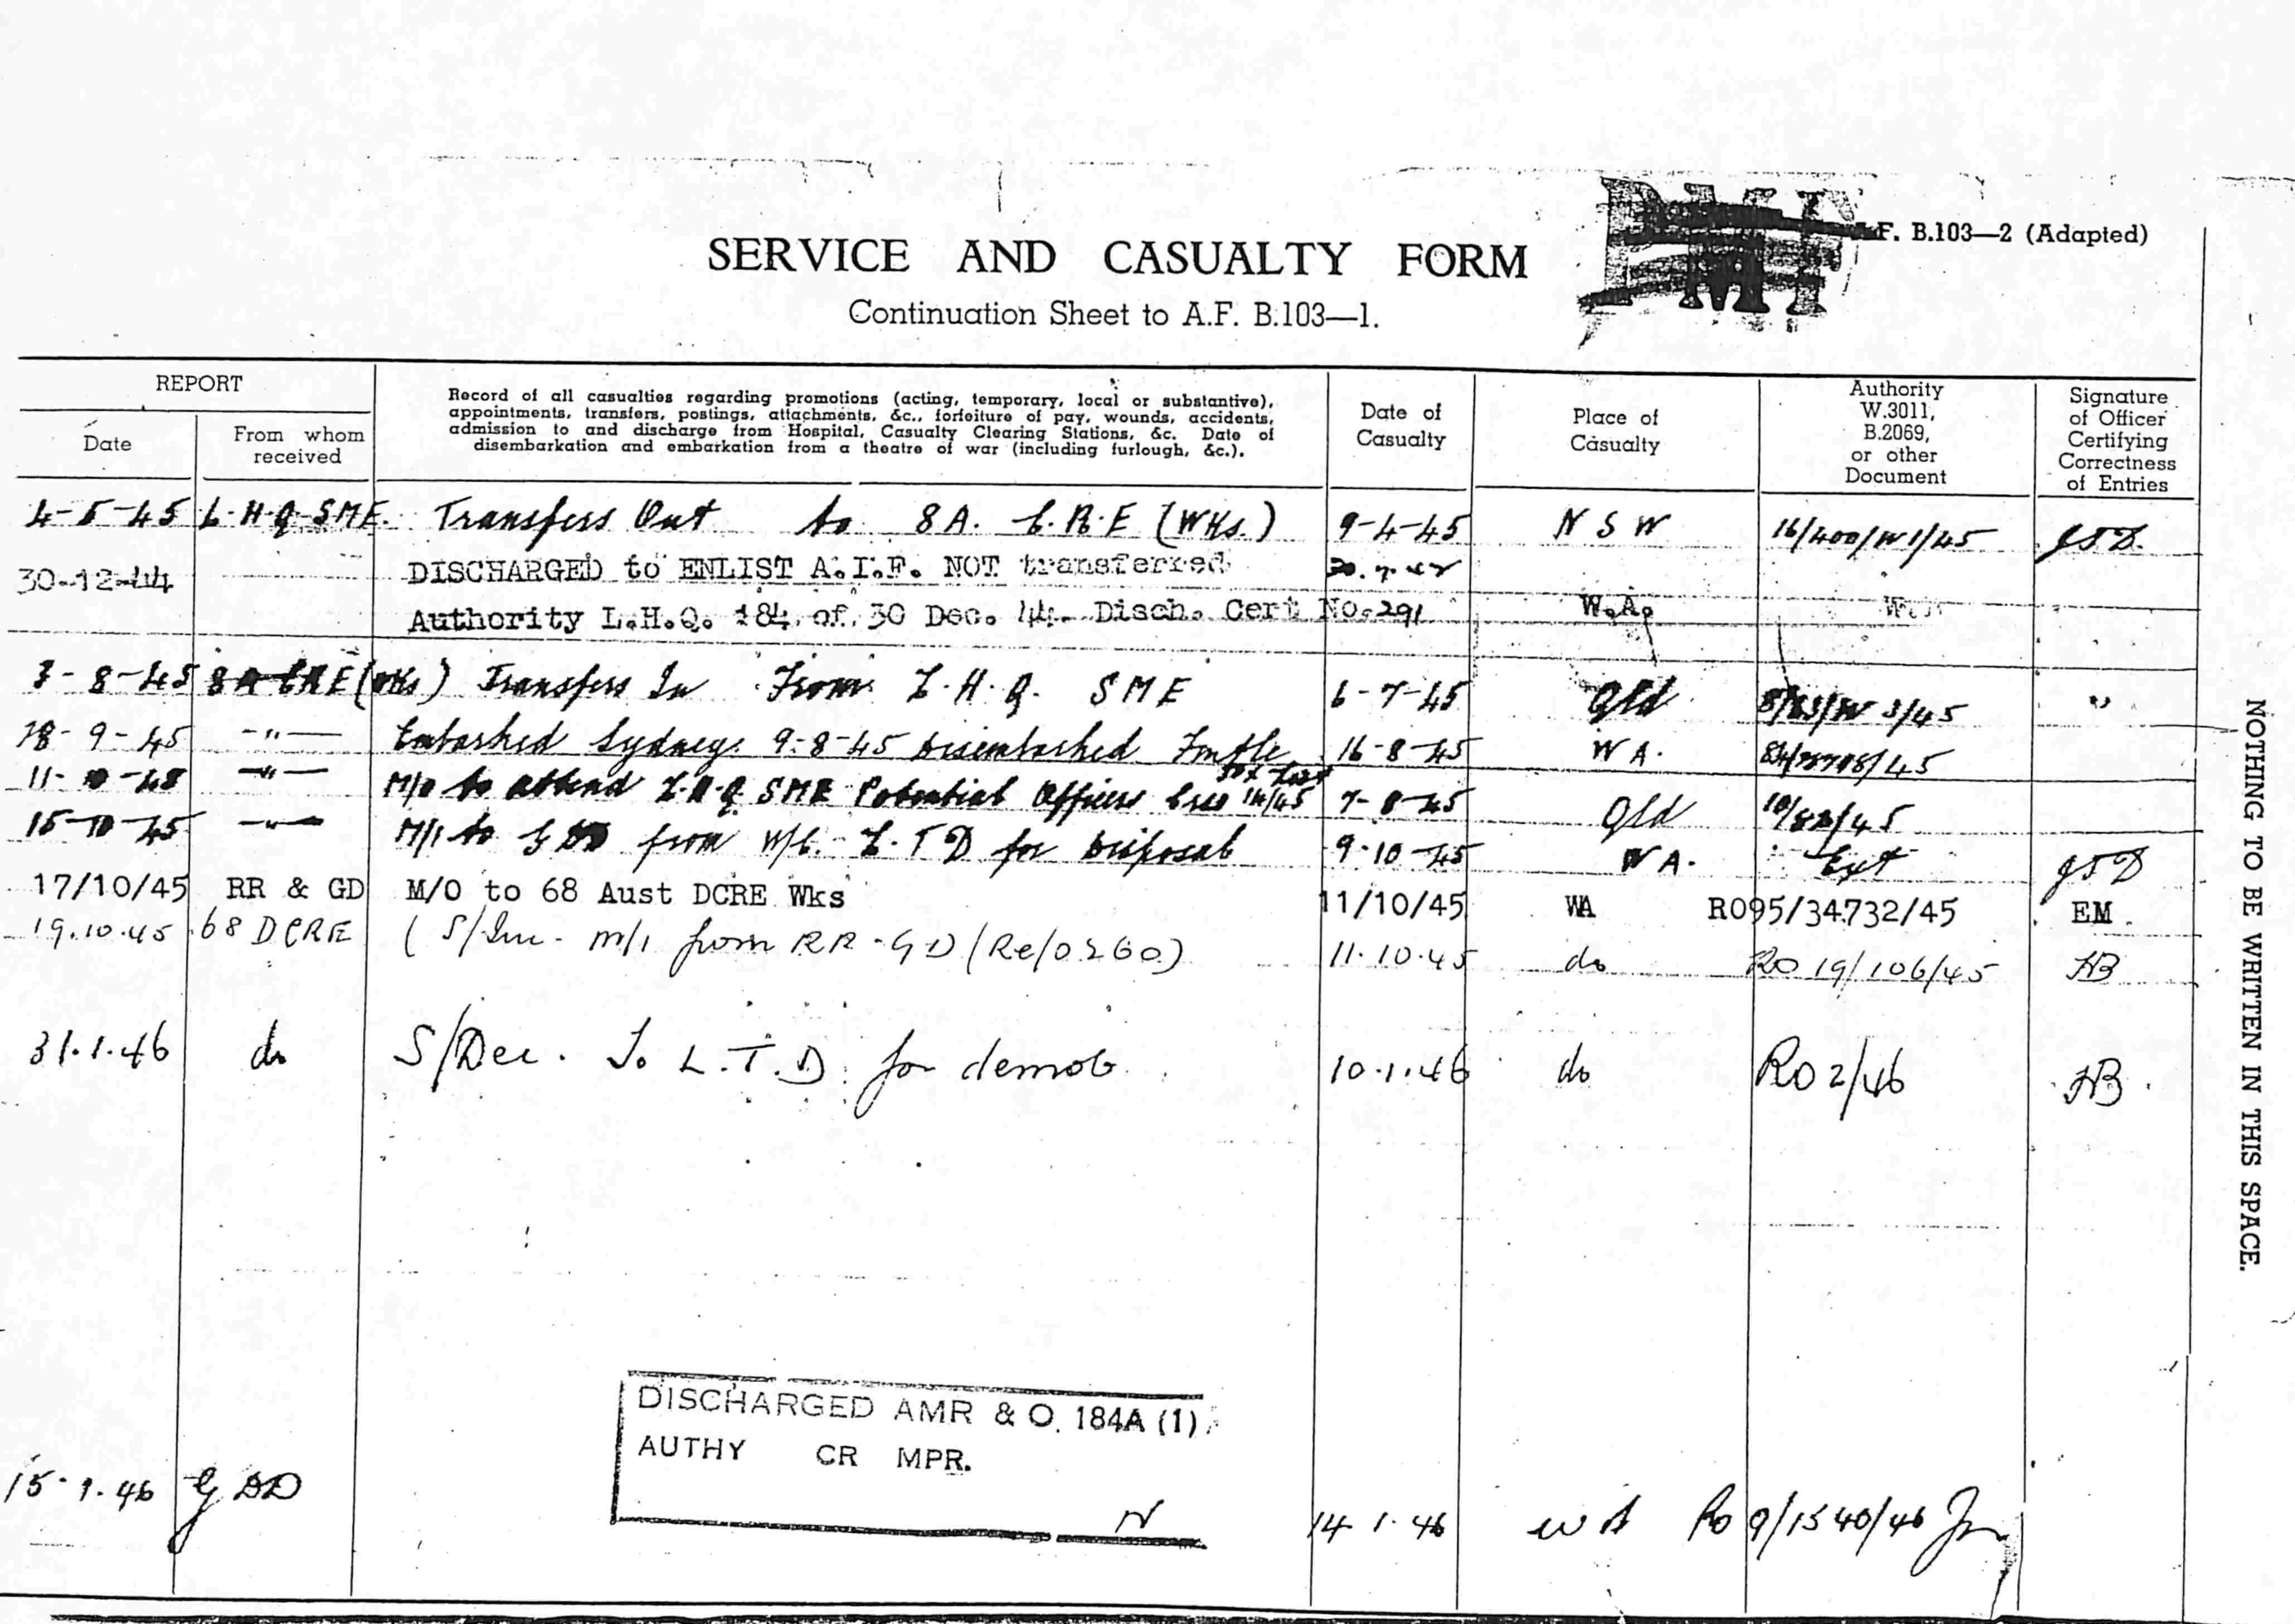 F. B.103—2 (Adapted)
SERVICE AND CASUALTY FORM
Continuation Sheet to A.F. B.103—1.
REPORT
Date
From whom received
Record of all casualties regarding promotions (acting, temporary, local or substantive),
appointments, transfers, postings, attachments, &c., forfeiture of pay, wounds, accidents,
admission to and discharge from Hospital, Casualty Clearing Stations, &c. Date of
disembarkation and embarkation from a theatre of war (including furlough, &c.).
Date of Casualty
Place of Casualty
Authority W.3011, B.2069, or other Document
Signature of Officer Certifying Correctness of Entries
4-5-45 L.H.Q-SME. Transfers Out to 8A. C.R.E (Wks.) 9-4-45 N S W 16/400/W1/45
30-12-44 DISCHARGED to ENLIST A.I.F. NOT transferred
Authority L.H.Q. 184 of 30 Dec. 44. Disch. Cert No. 291 W.A.
3-8-45 8A CRE (Wks) Transfers In From L.H.Q. SME 6-7-45 Qld 8/83/W 3/45 "
18-9-45 -"- Embarked Sydney 9-8-45 Disembarked Fmtle 16-8-45 W A.
11-10-45 -"- M/O to attend L.H.Q. SME Potential Officers 14/45 7-8-45 Qld 10/82/45
15-10-45 -"- M/I to from W/C. L.T D for Disposal 9-10-45 W A. Ext
17/10/45 RR & GD M/O to 68 Aust DCRE Wks 11/10/45 WA RO95/34732/45 EM
19.10.45 68 DCRE (S/Inc - m/1 from RR-GD (Re/0260) 11.10.45 do RO 19/106/45 HB
31.1.46 do S/Dec. To L.T.D. for demob. 10.1.46 do RO 2/46 HB.
DISCHARGED AMR & O. 184A (1)
AUTHY CR MPR.
15-1.46 G DD N 14 1.46 W A Ro 9/1540/46
NOTHING TO BE WRITTEN IN THIS SPACE.